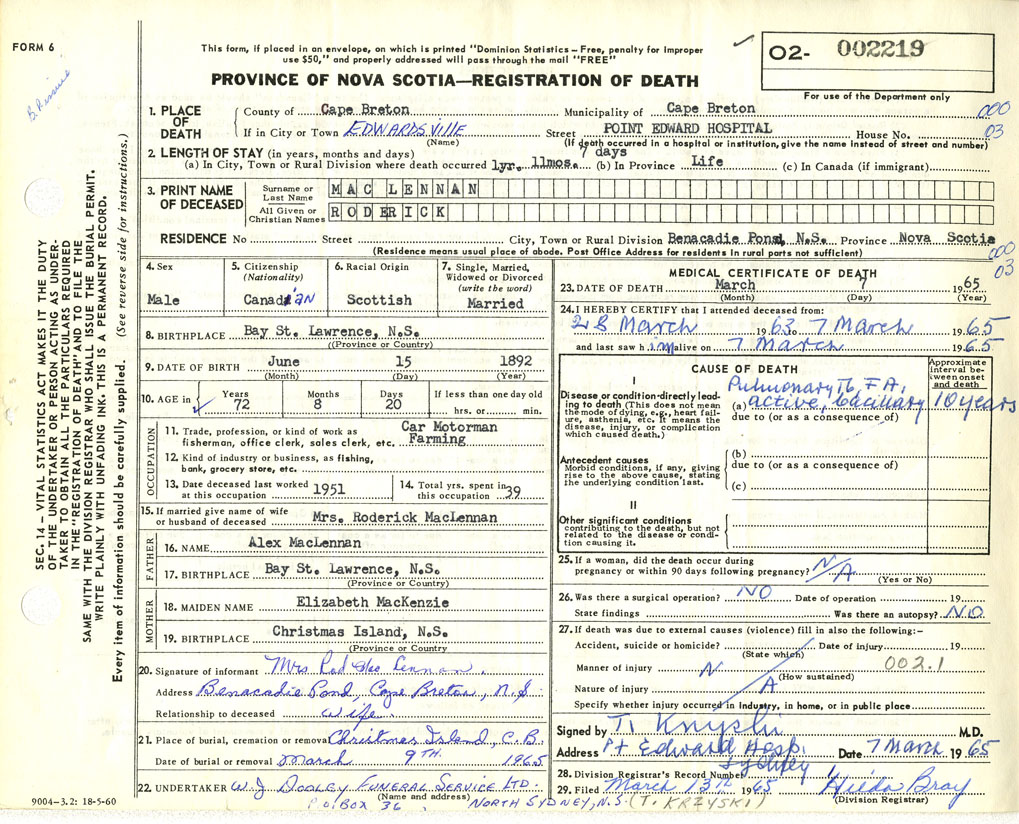 FORM 6
B. 
This form, if placed in an envelope, on which is printed "Dominion Statistics – Free, penalty for improper
use $50," and properly addressed will pass through the mail "FREE"
02- 002219
For use of the Department only
PROVINCE OF NOVA SCOTIA—REGISTRATION OF DEATH
SEC. 14 – VITAL STATISTICS ACT MAKES IT THE DUTY
OF THE UNDERTAKER OR PERSON ACTING AS UNDER-
TAKER TO OBTAIN ALL THE PARTICULARS REQUIRED
IN THE "REGISTRATION OF DEATH" AND TO FILE THE
SAME WITH THE DIVISION REGISTRAR WHO SHALL ISSUE THE BURIAL PERMIT.
WRITE PLAINLY WITH UNFADING INK. THIS IS A PERMANENT RECORD.
Every item of information should be carefully supplied. (See reverse side for instructions.)
1. PLACE OF DEATH County of Cape Breton Municipality of Cape Breton 000
If in City or Town EDWARDSVILLE (Name) Street POINT EDWARD HOSPITAL House No. 03
(If death occurred in a hospital or institution, give the name instead of street and number)
2. LENGTH OF STAY (in years, months and days) 7 days
(a) In City, Town or Rural Division where death occurred 1yr. 11mos. (b) In Province Life (c) In Canada (if immigrant)
3. PRINT NAME OF DECEASED
Surname or Last Name MAC LENNAN
All Given or Christian Names RODERICK
RESIDENCE No Street City, Town or Rural Division Benacadie Pond, N.S. Province Nova Scotia
(Residence means usual place of abode. Post Office Address for residents in rural parts not sufficient)
000
03
4. Sex
Male
5. Citizenship (Nationality)
Canadian
6. Racial Origin
Scottish
7. Single, Married, Widowed or Divorced (write the word)
Married
8. BIRTHPLACE Bay St. Lawrence, N.S.
(Province or Country)
9. DATE OF BIRTH June 15 1892
(Month) (Day) (Year)
10. AGE in Years 72 Months 8 Days 20 If less than one day old hrs. or min.
OCCUPATION
11. Trade, profession, or kind of work as fisherman, office clerk, sales clerk, etc. Car Motorman Farming
12. Kind of industry or business, as fishing, bank, grocery store, etc.
13. Date deceased last worked at this occupation 1951
14. Total yrs. spent in this occupation 39
15. If married give name of wife or husband of deceased Mrs. Roderick MacLennan
FATHER
16. NAME Alex MacLennan
17. BIRTHPLACE Bay St. Lawrence, N.S.
(Province or Country)
MOTHER
18. MAIDEN NAME Elizabeth MacKenzie
19. BIRTHPLACE Christmas Island, N.S.
(Province or Country)
20. Signature of informant Mrs Rod Mac Lennan
Address Benacadie Pond, Cape Breton, N.S.
Relationship to deceased wife
21. Place of burial, cremation or removal Christmas Island, C.B.
Date of burial or removal March 9TH 1965
22. UNDERTAKER W.J DOOLEY FUNERAL SERVICE LTD.
(Name and address)
P.O BOX 36, NORTH SYDNEY, N.S.
9004–3.2: 18-5-60
MEDICAL CERTIFICATE OF DEATH
23. DATE OF DEATH March 7 1965
(Month) (Day) (Year)
24. I HEREBY CERTIFY that I attended deceased from:
28 March 1963 to 7 March 1965
and last saw him alive on 7 March 1965
CAUSE OF DEATH
Approximate interval between onset and death
I
Disease or condition directly leading to death (This does not mean the mode of dying, e.g., heart failure, asthenia, etc. It means the disease, injury, or complication which caused death.)
(a) Pulmonary Tb, F.A, active, bacillary 10 years
due to (or as a consequence of)
Antecedent causes
Morbid conditions, if any, giving rise to the above cause, stating the underlying condition last.
(b)
due to (or as a consequence of)
(c)
II
Other significant conditions
contributing to the death, but not related to the disease or condition causing it.
25. If a woman, did the death occur during pregnancy or within 90 days following pregnancy? N/A
(Yes or No)
26. Was there a surgical operation? NO Date of operation 19
State findings Was there an autopsy? NO
27. If death was due to external causes (violence) fill in also the following:–
Accident, suicide or homicide? Date of injury 19
(State which)
002.1
Manner of injury N/A
(How sustained)
Nature of injury
Specify whether injury occurred in Industry, in home, or in public place
Signed by T. M.D.
Address Pt Edward Hosp. Sydney Date 7 March 1965
28. Division Registrar's Record Number
29. Filed March 13th 1965 Hilda Bray
(Division Registrar)
(T. KRZYSKI)